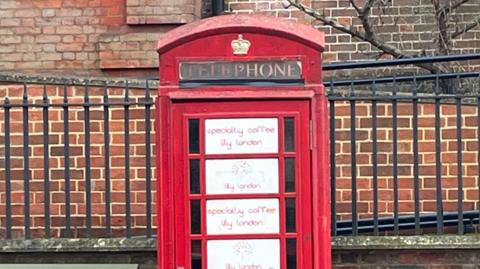 TELEPHONE
specialty coffee
lily london
lily london
specialty coffee
lily london
lily london